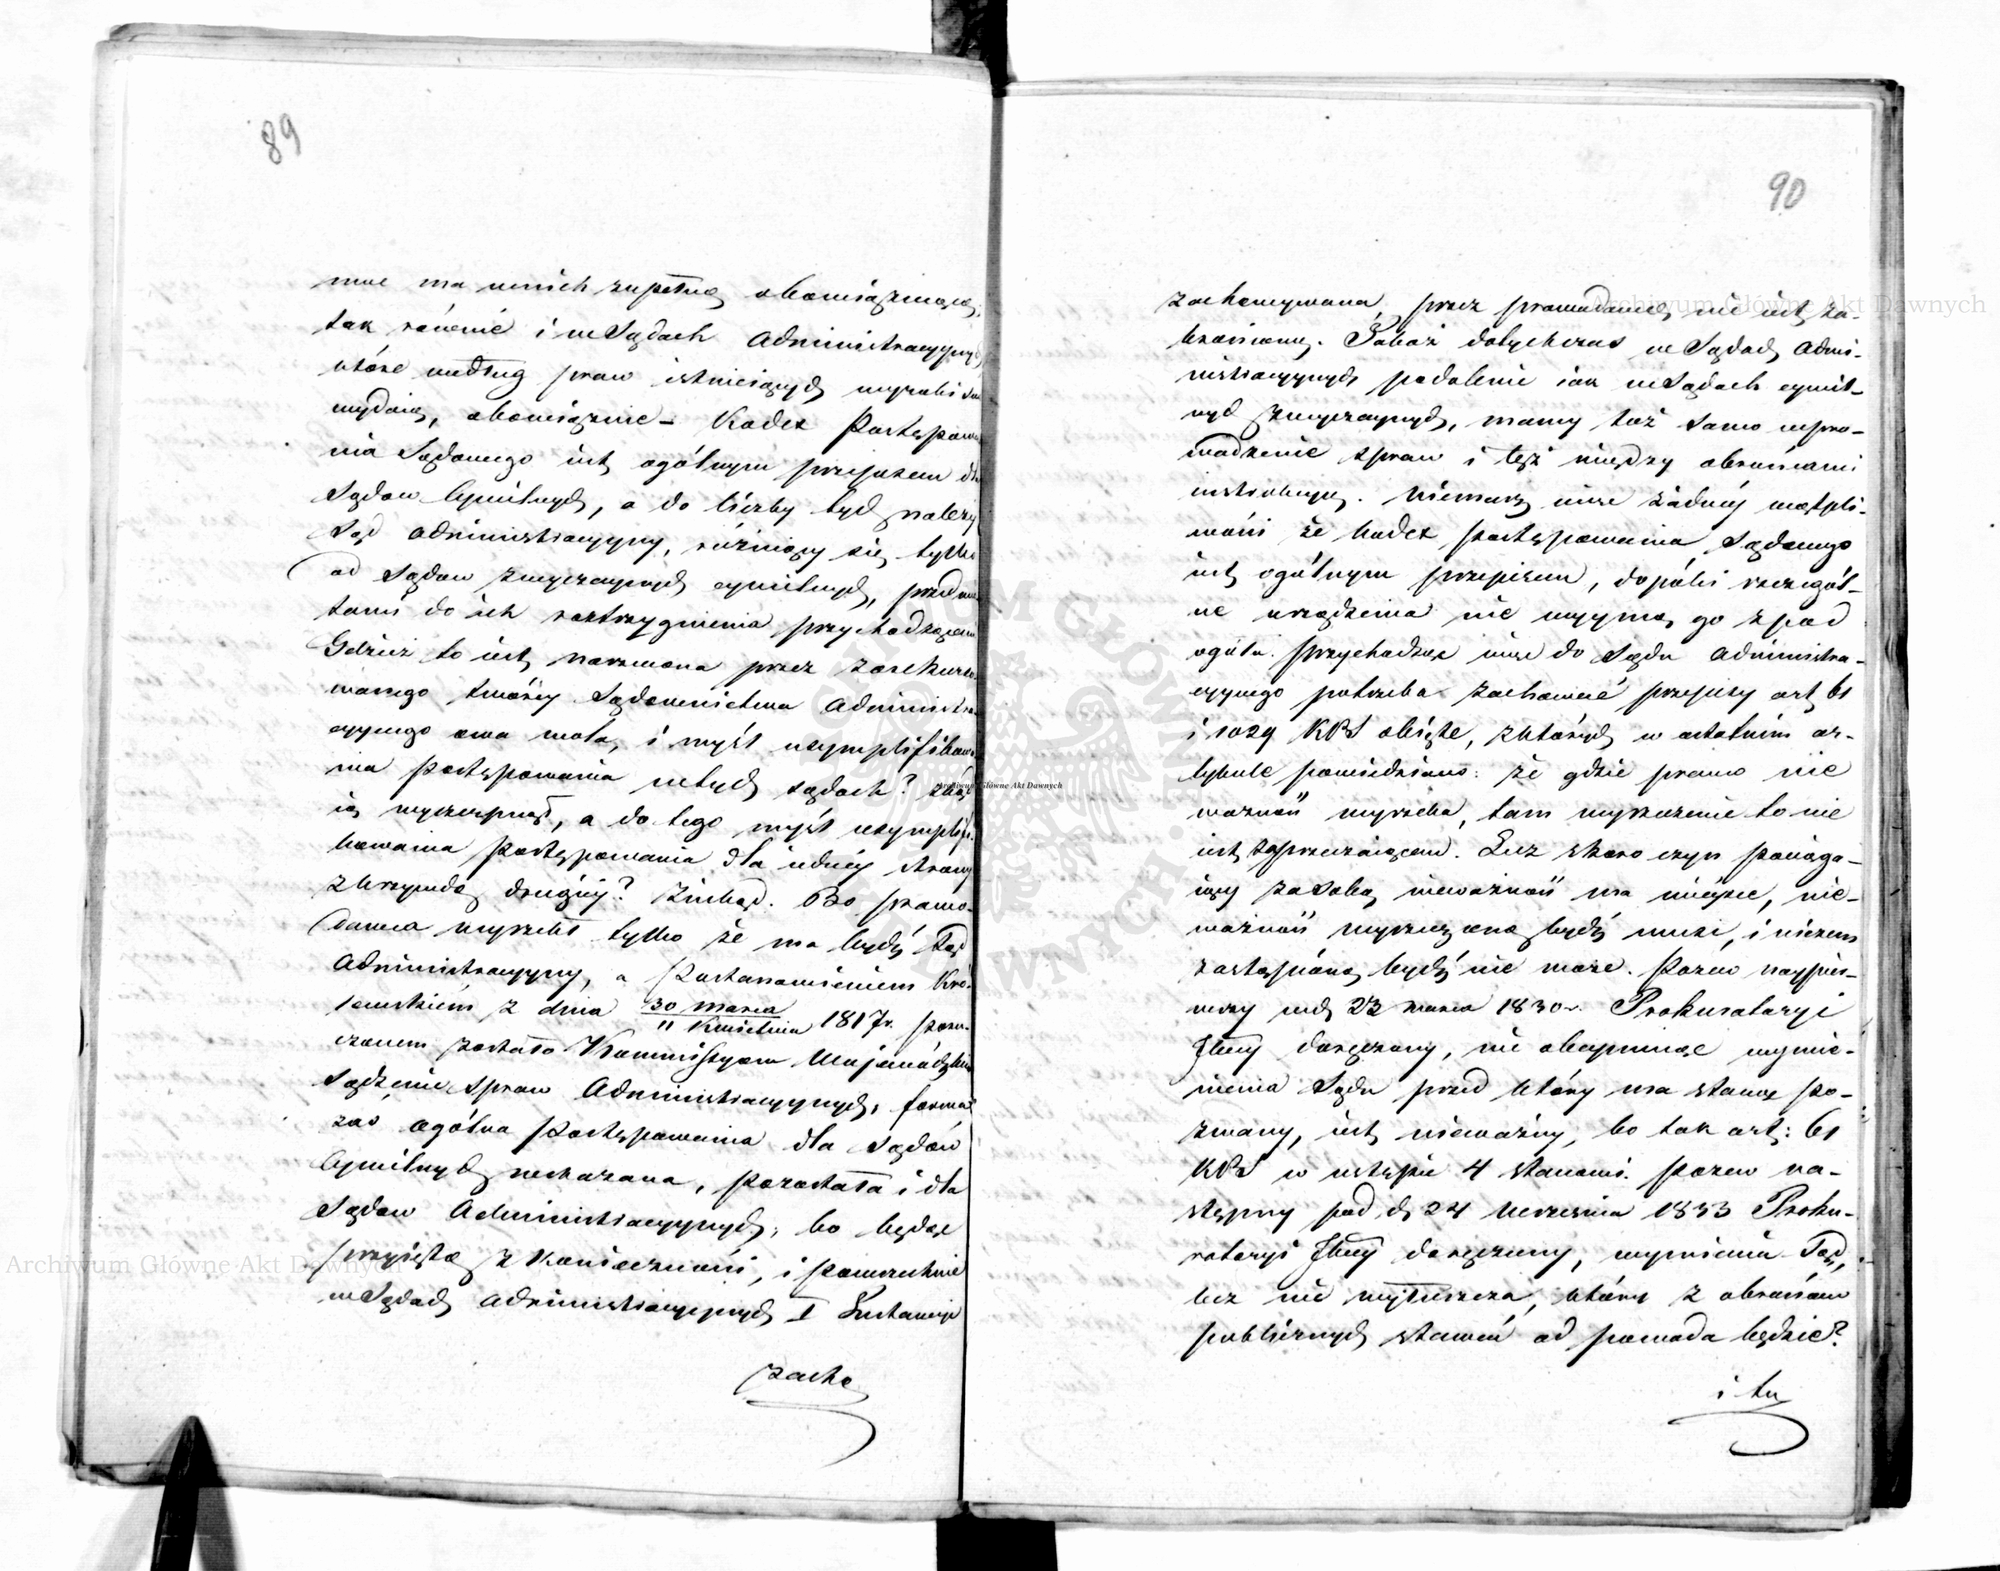 89
moc ma w nich zupełną obowiązującą,
tak równie i w Sądach Administracyjnych
które według praw istniejących wyroki swe
wydaią, obowiązuie – Kodex Postępowa
nia Sądowego iest ogólnym przepisem dla
Sądow Cywilnych, a do liczby tych należy
Sąd Administracyiny, różniący się tylko
od Sądow zwyczaynych cywilnych, przedmio
tami do ich roztrzygnienia przychodzącemi
Gdzież to iest
twórcy Sądownictwa Administra
cyynego owa wola, i myśl usymplifikowa
nia Postępowania w tych sądach? zkąd
ią wyczerpnął, a do tego myśl usymplifi
kowania Postępowania dla iedney strony
z krzywdą drugiey? Znikąd. Bo prawo-
dawca wyrzekł tylko że ma bydź Sąd
Administracyyny, a Postanowieniem Kró-
lewskiém z dnia 30 Marca
11 Kwietnia 1817 r. poru-
czonem zostało Kommissyom Wojewódzkim
sądzenie spraw Administracyynych, forma
zaś ogólna Postępowania dla Sądów
Cywilnych wskazana, pozostała i dla
Sądow Administracyynych, bo będąc
przyiętą z konieczności, i powszechnie
w Sądach Administracyynych I Instancyi
zacho
90
zachowywana, przez prawodawcę nie iest za-
bronioną. dotychczas w Sądach Admi-
nistracyynych podobnie iak w Sądach cywil-
nych zwyczaynych, mamy toż samo wpro-
wadzenie spraw i też między obrońcami
instrukcyą. Niemasz więc żadney wątpli-
wości że kodex postępowania Sądowego
iest ogólnym przepisem, dopóki szczegól-
ne urządzenia nie wyymą go z pod
ogółu. Przychodząc więc do Sądu Administra-
cyynego potrzeba zachować przepisy art 61
i 1029 KPS obięte, z których w ostatnim ar-
tykule powiedziano: że gdzie prawo nie
ważność wyrzeka, tam wyrzeczenie to nie
iest. Lecz skoro czyn pociąga-
iący za sobą nieważność ma mieysce, nie-
ważność wyrzeczoną bydź musi, i niczem
zastąpioną bydź nie może. Pozew naypier-
wszy pod 23 marca 1830 r. Prokuratoryi
Jlney doręczony, nie obeymuiąc wymie-
nienia Sądu przed który ma stanąć po-
zwany, iest nieważny, bo tak art: 61
KPS w ustępie 4 stanowi. Pozew na-
stępny pod d. 24 Września 1833 Proku-
ratoryi Jlney doręczony, wymienia Sąd,
lecz nie wytuszcza, który z obrońców
publicznych stawać od powoda będzie?
i tu
Archiwum Główne Akt Dawnych
Archiwum Główne Akt Dawnych
Archiwum Główne Akt Dawnych